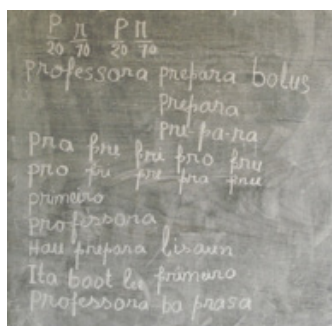 P n P n
20 70 20 70
professora prepara bolus
prepara
pre-pa-ra
pra pre pri pro pru
pro pri pre pra pru
primeiro
professora
Hau prepara lisaun
Ita boot lee primeiro
Professora ba prasa